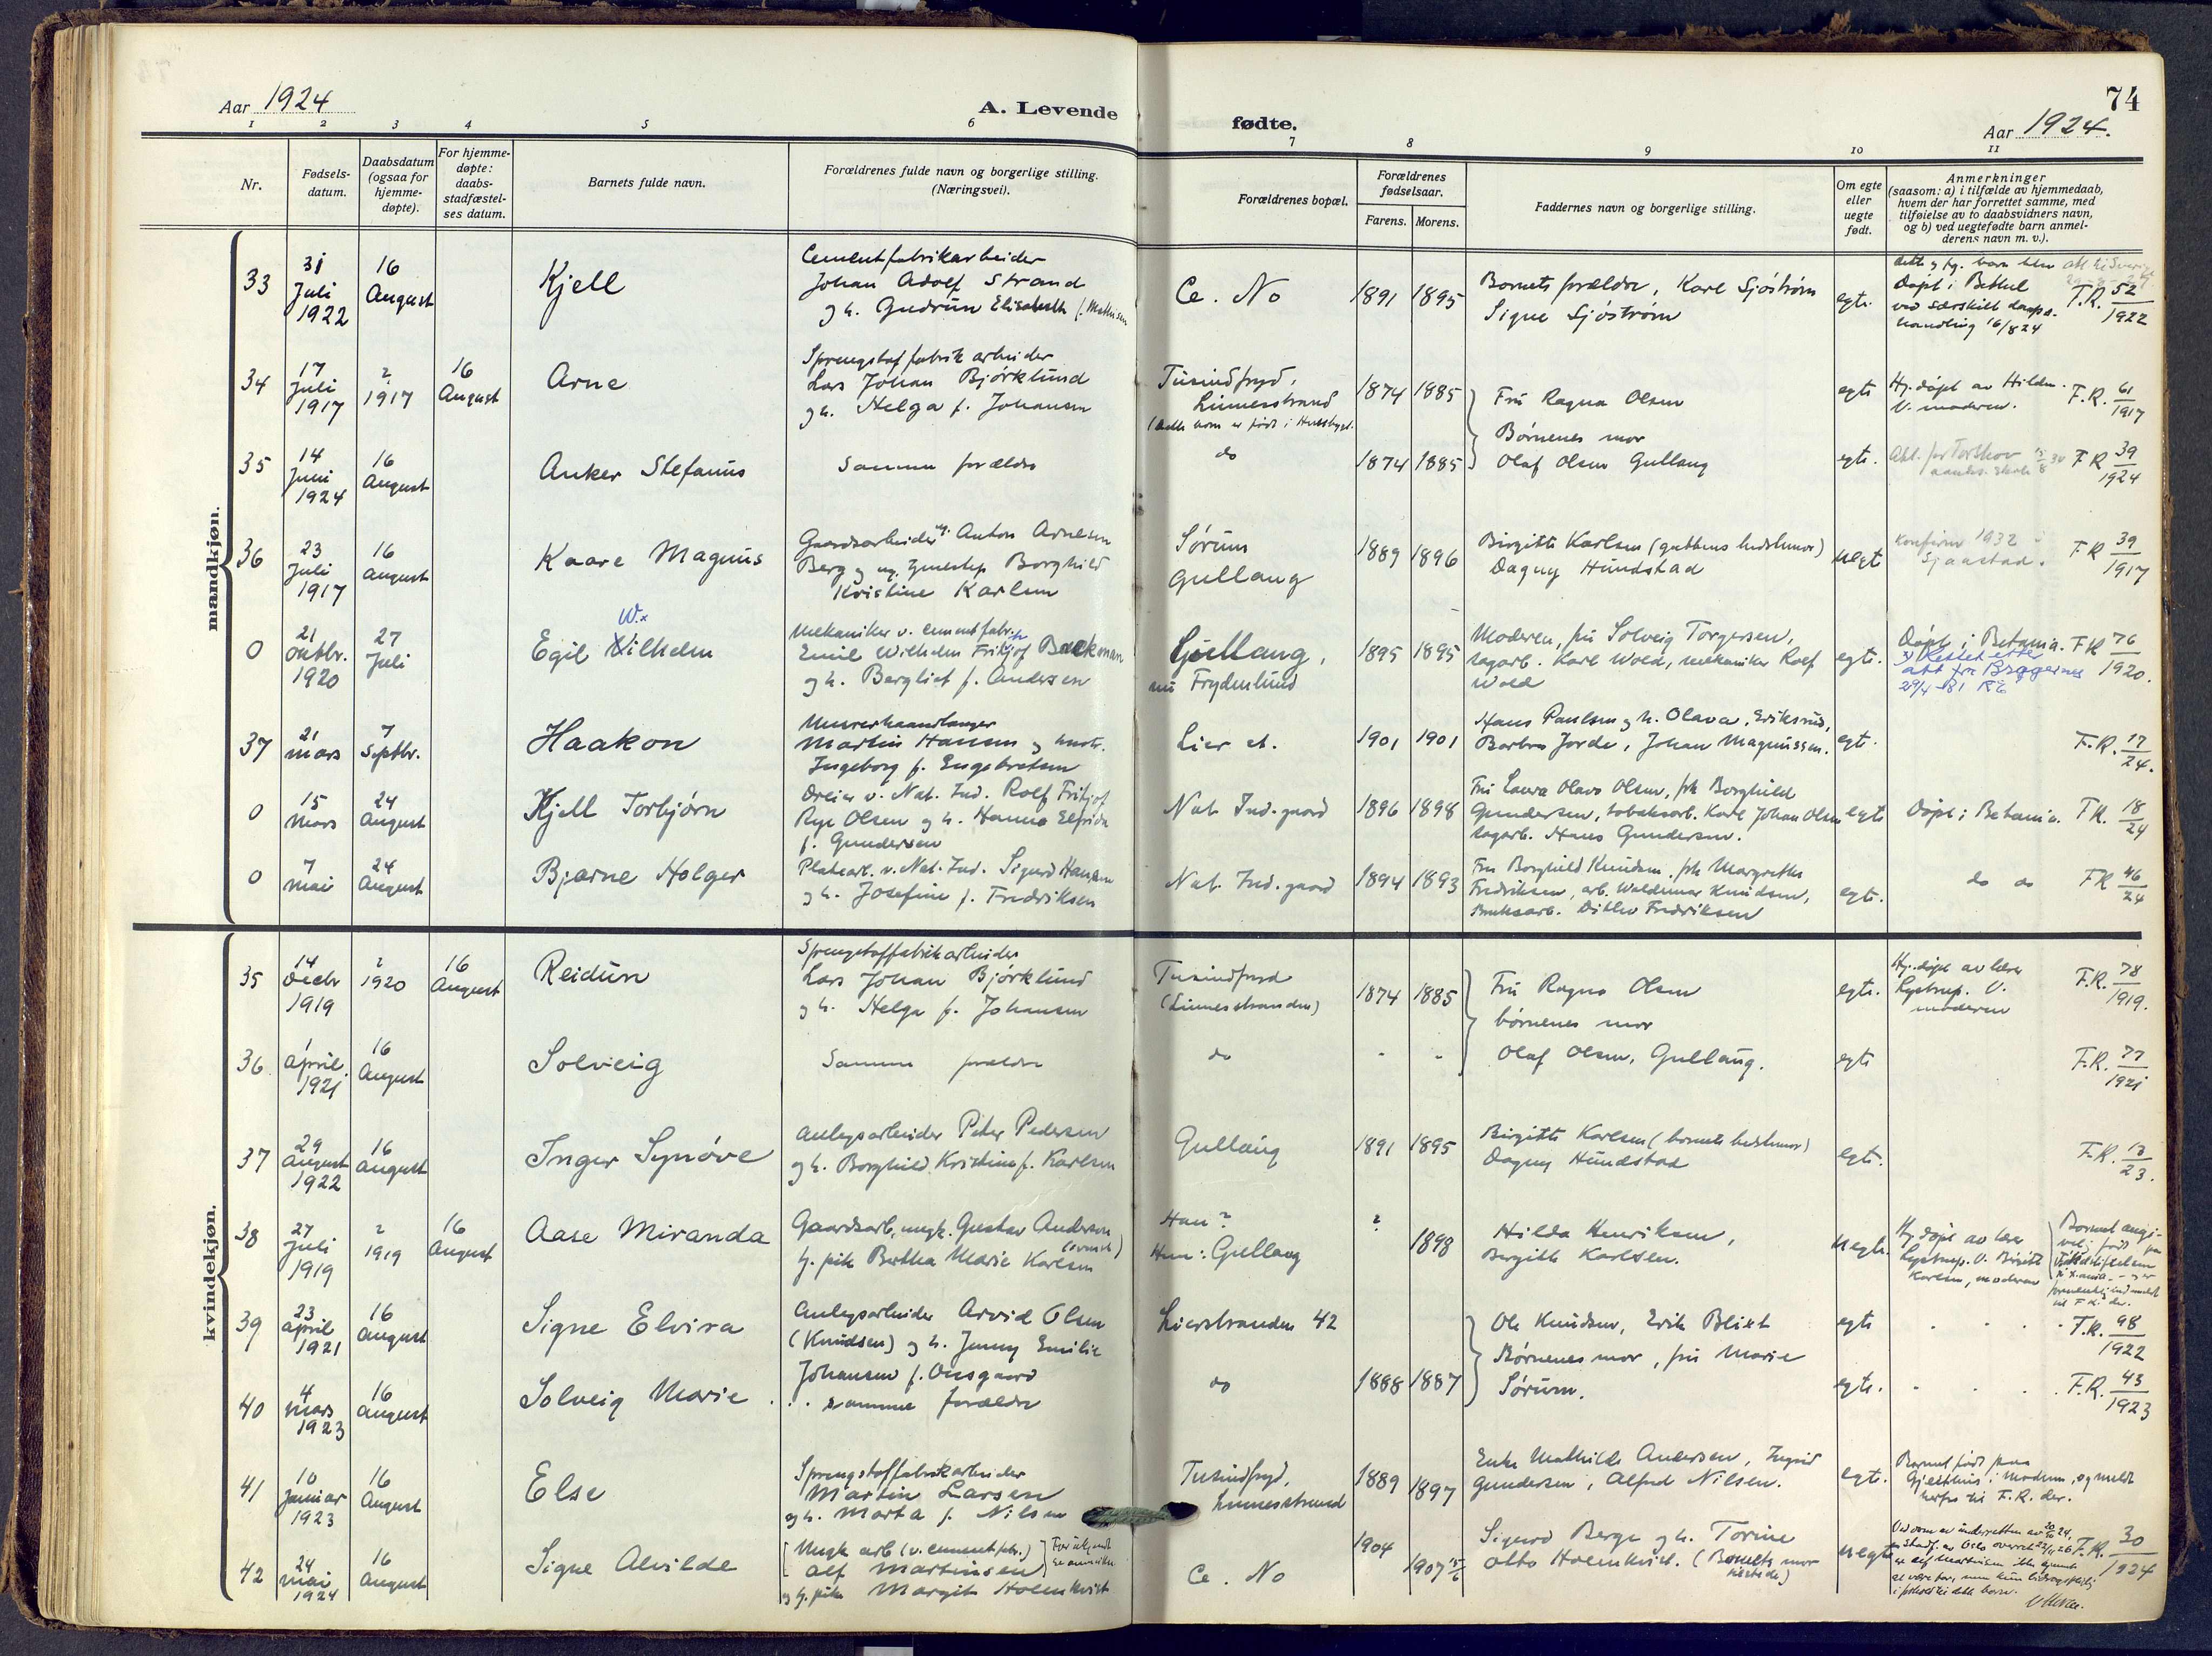 Aar 1924
A. Levende
fødte.
Aar 1924.
74
1 2 3 4 5 6 7 8 9 10 11
Nr.
Fødsels-
datum.
Daabsdatum
(ogsaa for
hjemme-
døpte).
For hjemme-
døpte:
daabs-
stadfæstel-
ses datum.
Barnets fulde navn.
Forældrenes fulde navn og borgerlige stilling.
(Næringsvei).
Forældrenes bopæl.
Forældrenes
fødselsaar.
Farens. Morens.
Faddernes navn og borgerlige stilling.
Om egte
eller
uegte
født.
Anmerkninger
(saasom: a) i tilfælde av hjemmedaab,
hvem der har forrettet samme, med
tilføielse av to daabsvidners navn,
og b) ved uegtefødte barn anmel-
derens navn m. v.).
mandkjøn.
33
31
Juli
1922
16
August
Kjell
Cementfabrikarbeider
Johan Adolf Strand
og h. Gudrun Elisabeth f. Mathisen
Ce. No
1891 1895
Barnets forældre, Karl Sjøstrøm
Signe Sjøstrøm
egte.
Døpt i Bethel
ved særskilt daaps-
handling 16/8 24
F.R. 52/1922
34
17
Juli
1917
?
1917
16
August
Arne
Sprengstoffabrikarbeider
Lars Johan Bjørklund
og h. Helga f. Johansen
Tusindfryd,
Linnesstrand
1874 1885
Fru Ragna Olsen
Børnenes mor
Olaf Olsen Gullaug
egte
Hj. døpt av
V. moderen.
F.R. 61/1917
35
14
Juni
1924
16
August
Anker Stefanus
Samme forældre
do
1874 1885
egte.
F R 39/1924
36
23
Juli
1917
16
August
Kaare Magnus
Gaardsarbeider ug. Anton Arnesen
Berg og ug. tjenestep. Borghild
Kristine Karlsen
Sørum
Gullaug
1889 1896
Birgitte Karlsen (guttens bedstemor)
Dagny Hundstad
uegte
Konfirm 1932 i
Sjaastad.
F R 39/1917
0
21
oktbr.
1920
27
Juli
W.x
Egil Wilhelm
Mekaniker v. cementfabr.
Emil Wilhelm Fritjof Backman
og h. Bergliot f. Andersen
Gullaug,
nu Frydenlund
1895 1895
Moderen, fru Solveig Torgersen,
sagarb. Karl Wold, mekaniker Rolf
Wold
egte.
Døpt i Betania.
x) Rettet etter
att fra Bragernes
29/4-81 RE
F R 76/1920.
37
21
mars
7
Septbr.
Haakon
Murerhaandlanger
Martin Hansen og hustr.
Ingeborg f. Engebretsen
Lier st.
1901 1901
Hans Paulsen og h. Olava, Eriksrud,
Barbra Jorde, Johan Magnussen.
egte.
F.R. 17/24.
0
15
Mars
24
August
Kjell Torbjørn
Dreier v. Nat. Ind. Rolf Fritjof
Rye Olsen og h. Hanna Elfrida
f. Gundersen
Nat. Ind. gaard
1896 1898
Fru Laura Olava Olsen, frk Borghild
Gundersen, tobaksarb. Karl Johan Olsen
sagarb. Hans Gundersen.
egte
Døpt i Betania.
F R. 18/24
0
7
mai
24
August
Bjarne Holger
Platearb. v. Nat. Ind. Sigurd Hansen
og h. Josefine f. Fredriksen
Nat. Ind. gaard
1894 1893
Fru Borghild Knudsen, frk Margrethe
Fredriksen, arb. Waldemar Knudsen,
Bruksarb. Ditlev Fredriksen
egte.
do do
F R 46/24
kvindekjøn.
35
14
decbr
1919
?
1920
16
August
Reidun
Sprengstoffabrikarbeider
Lars Johan Bjørklund
og h. Helga f. Johansen
Tusindfryd
(Linnesstranden)
1874 1885
Fru Ragna Olsen
børnenes mor
Olaf Olsen, Gullaug.
egte.
Hj. døpt av lærer
Lystrup. V.
moderen
F.R. 78/1919.
36
1
april
1921
16
August
Solveig
Samme forældre
do
- -
egte
F.R. 77/1921
37
29
August
1922
16
August
Inger Synøve
Anlegsarbeider Peter Pedersen
og h. Borghild Kristine f. Karlsen
Gullaug
1891 1895
Birgitte Karlsen (barnets bedstemor)
Dagny Hundstad
egte.
F.R. 13/23.
38
27
Juli
1919
?
1919
16
August
Aase Miranda
Gaardsarb. ungk. Gustav Anderson
(svensk)
tj. pike Bertha Marie Karlsen
Han ?
Hun: Gullaug
?
1898
Hilda Henriksen,
Bergitte Karlsen.
uegte.
Hj. døpt av lærer
Lystrup. V. Birgitte
Karlsen, moderen
39
23
april
1921
16
August
Signe Elvira
Anlegsarbeider Arvid Olsen
(Knudsen) og h. Jenny Emilie
Johansen f. Onsgaard
Lierstranden 42
Ole Knudsen, Erik Blixt
Børnenes mor, fru Marie
Sørum.
egte
F.R. 98/1922
40
4
mars
1923
16
August
Solveig Marie
samme forældre
do
1888 1887
egte.
F.R. 43/1923
41
10
Januar
1923
16
August
Else
Sprengstoffabrikarbeider
Martin Larsen
og h. Marta f. Nilsen
Tusindfryd,
Linnesstrand
1889 1897
Enke Mathilde Andersen, Ingrid
Gundersen, Alfred Nilsen.
egte.
Barnet født paa
Gjesthus i Modum, og meldt
herfra til F.R. der.
42
24
mai
1924
16
August
Signe Alvilde
Ungk. arb (v. cementfabr.)
Alf Martinsen
og tj. pike Margit Holmkvist
Ce. No
1904
1907 15/6
Sigurd Berge og h. Torine
Otto Holmkvist. (Barnets mor
uegte
F.R. 30/1924